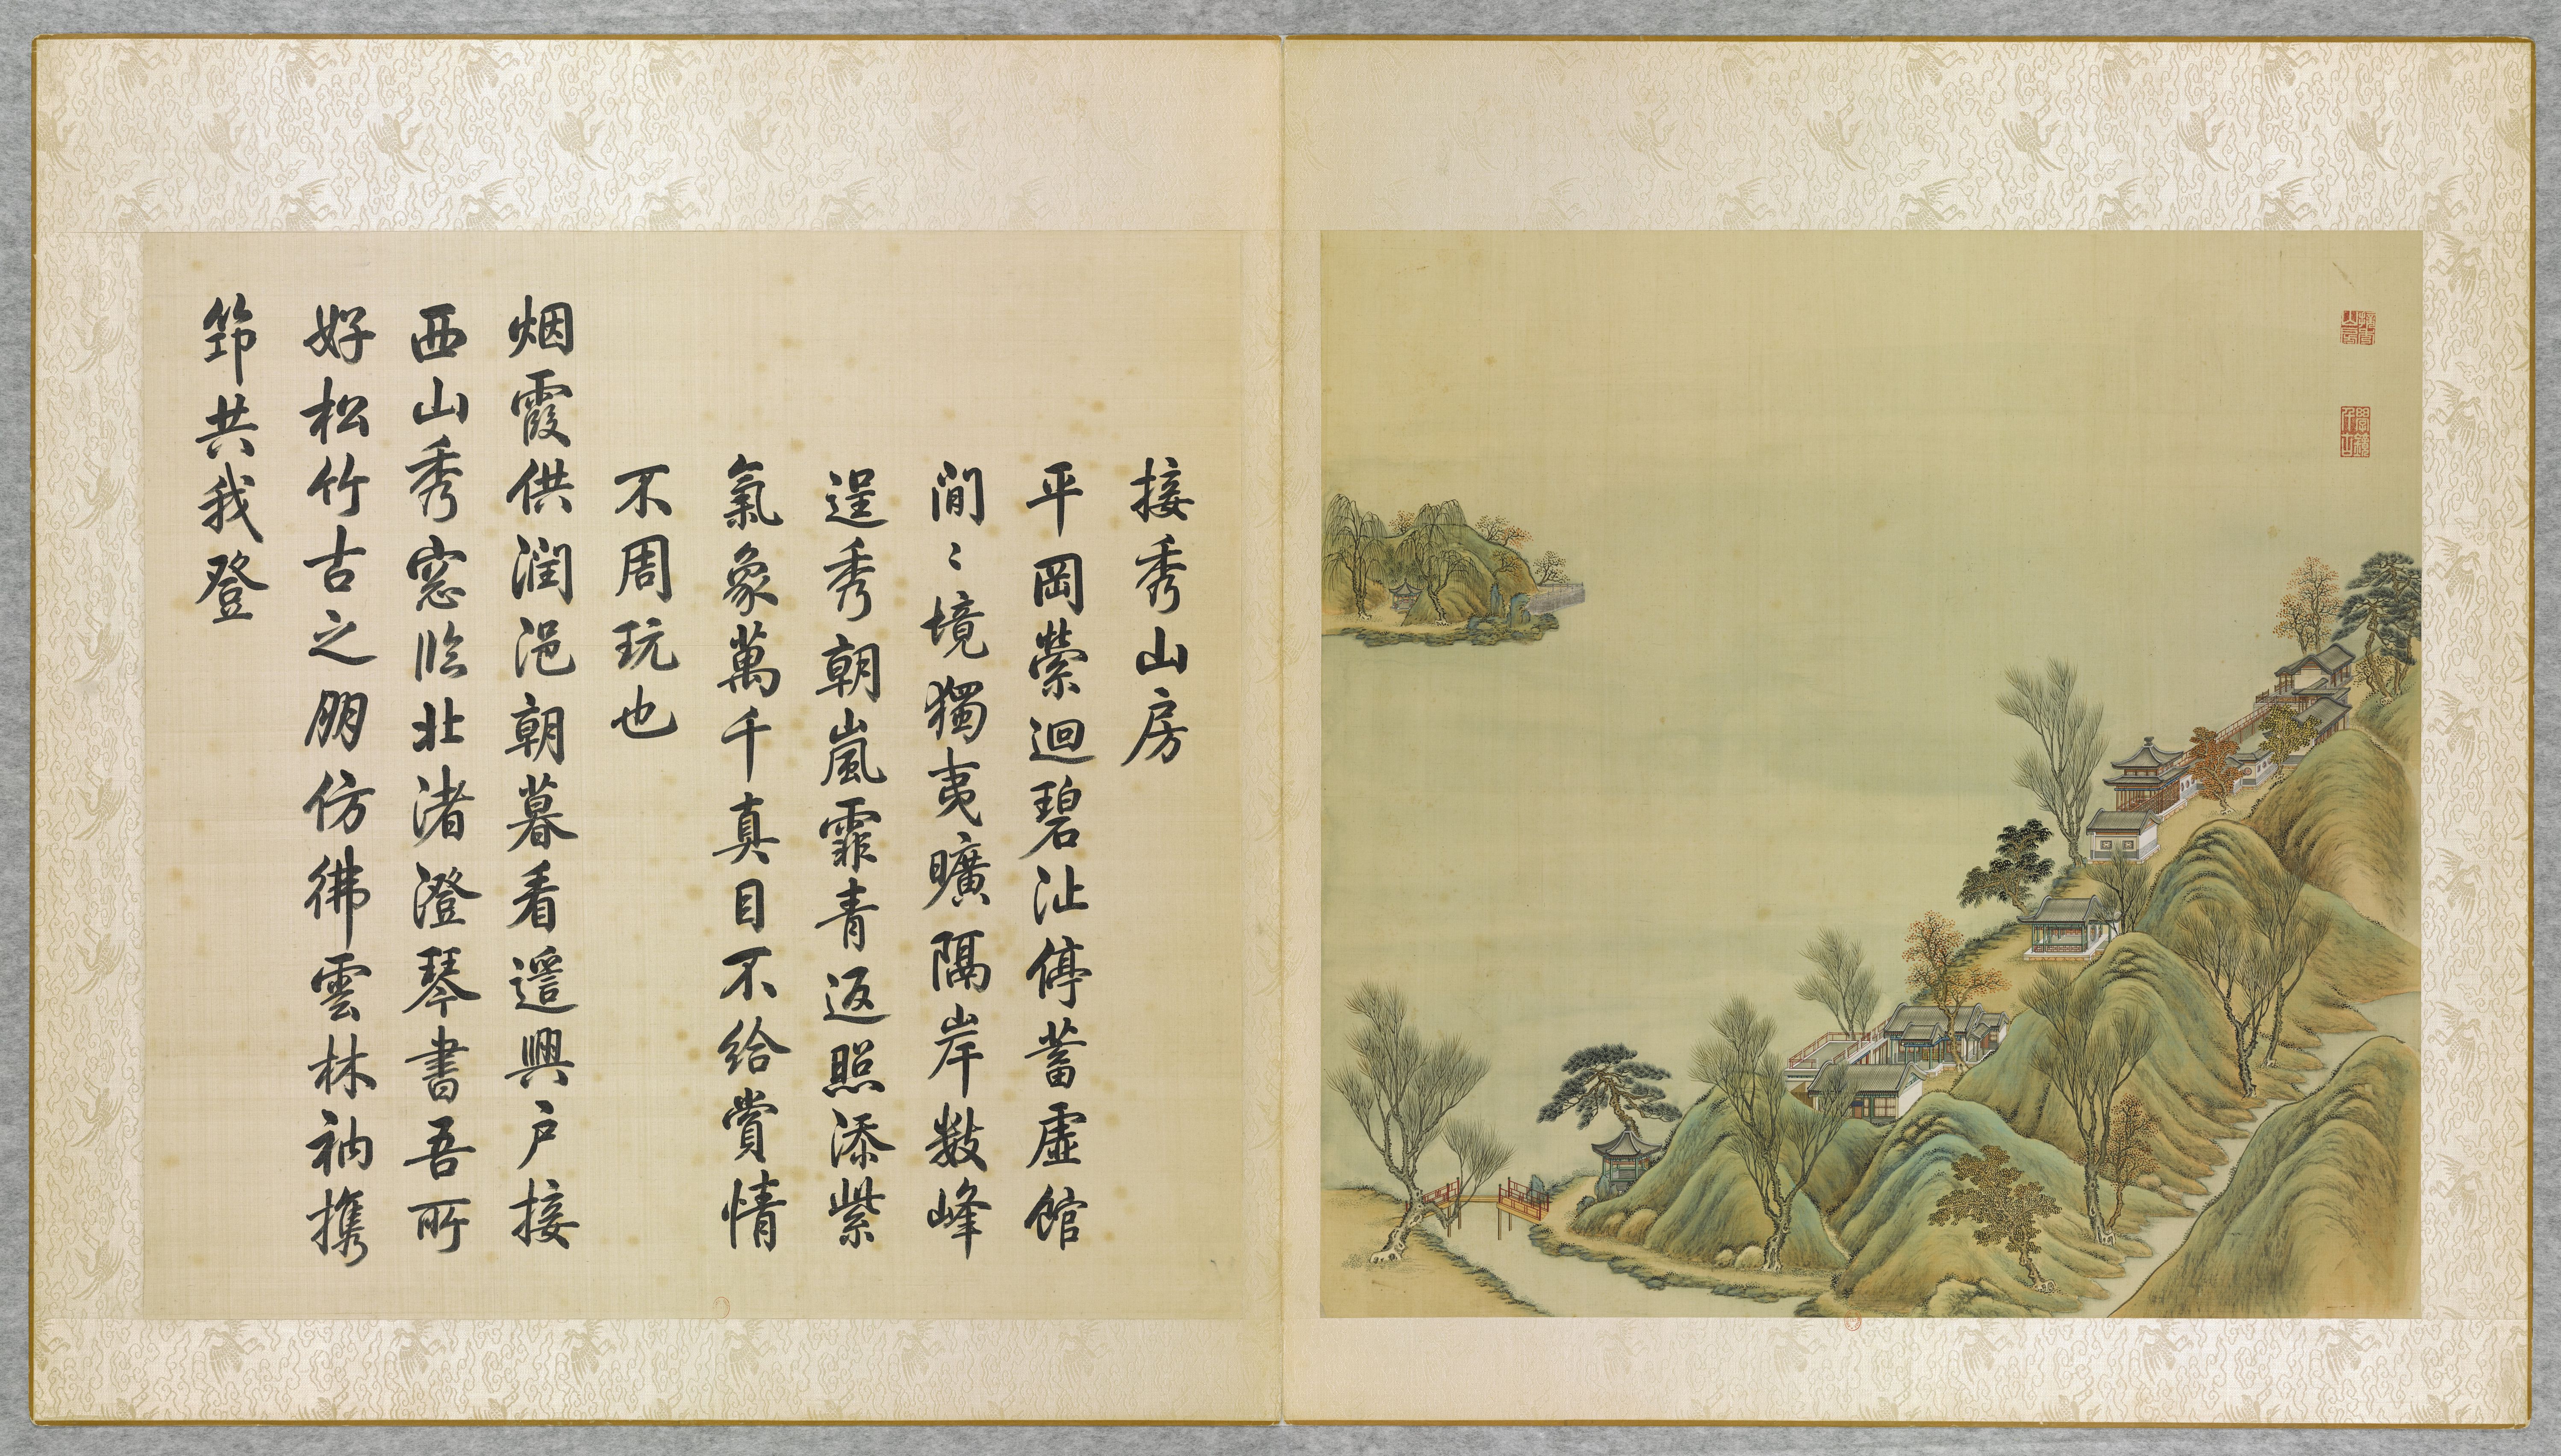 接秀山房
平岡縈迴碧沚停蓄虛館
閒〻境獨夷曠隔岸數峰
逞秀朝嵐霏青返照添紫
氣象萬千真目不給賞情
不周玩也
烟霞供潤浥朝暮看遥興戶接
西山秀窓臨北渚澄琴書吾所
好松竹古之朋仿彿雲林衲携
筇共我登